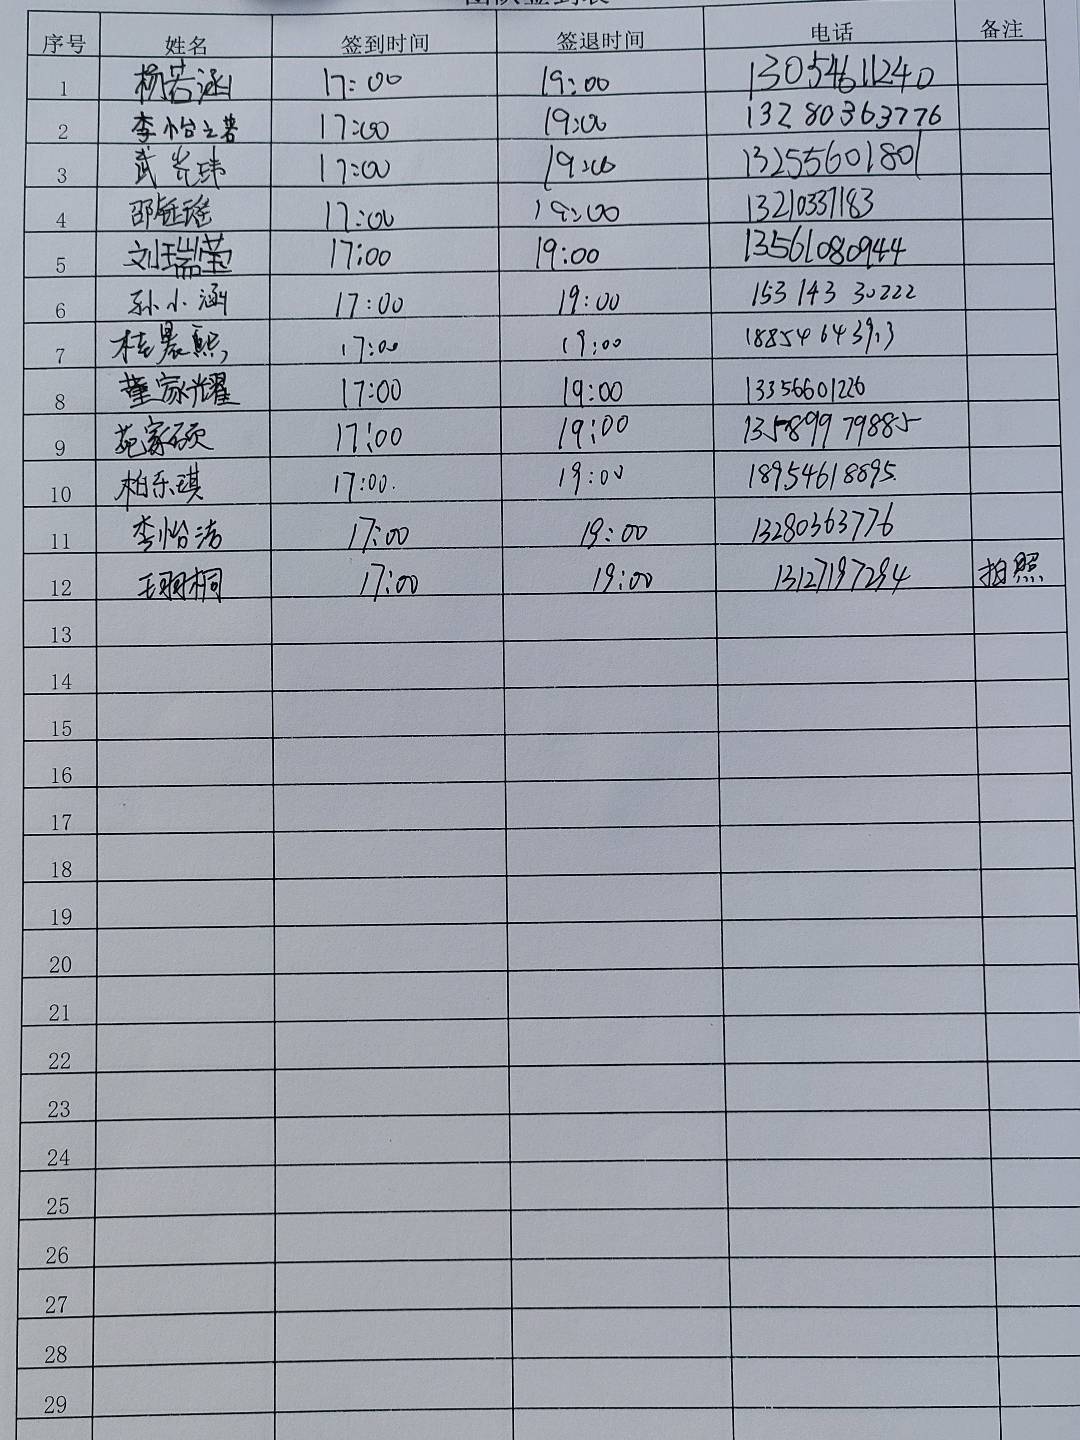 序号 姓名 签到时间 签退时间 电话 备注
1 杨若涵 17:00 19:00 13054611240
2 李怡 17:00 19:00 13280363776
3 武 玮 17:00 19:00 13255601801
4 邵钰瑶 17:00 19:00 13210337183
5 刘瑞莹 17:00 19:00 13561080944
6 孙小涵 17:00 19:00 153 143 30222
7 桂晨熙 17:00 19:00 18854643913
8 董家耀 17:00 19:00 13356601226
9 苑家硕 17:00 19:00 13589979885
10 柏乐琪 17:00. 19:00 18954618895.
11 李怡洁 17:00 19:00 13280363776
12 王翊桐 17:00 19:00 13127197294 拍照
13
14
15
16
17
18
19
20
21
22
23
24
25
26
27
28
29